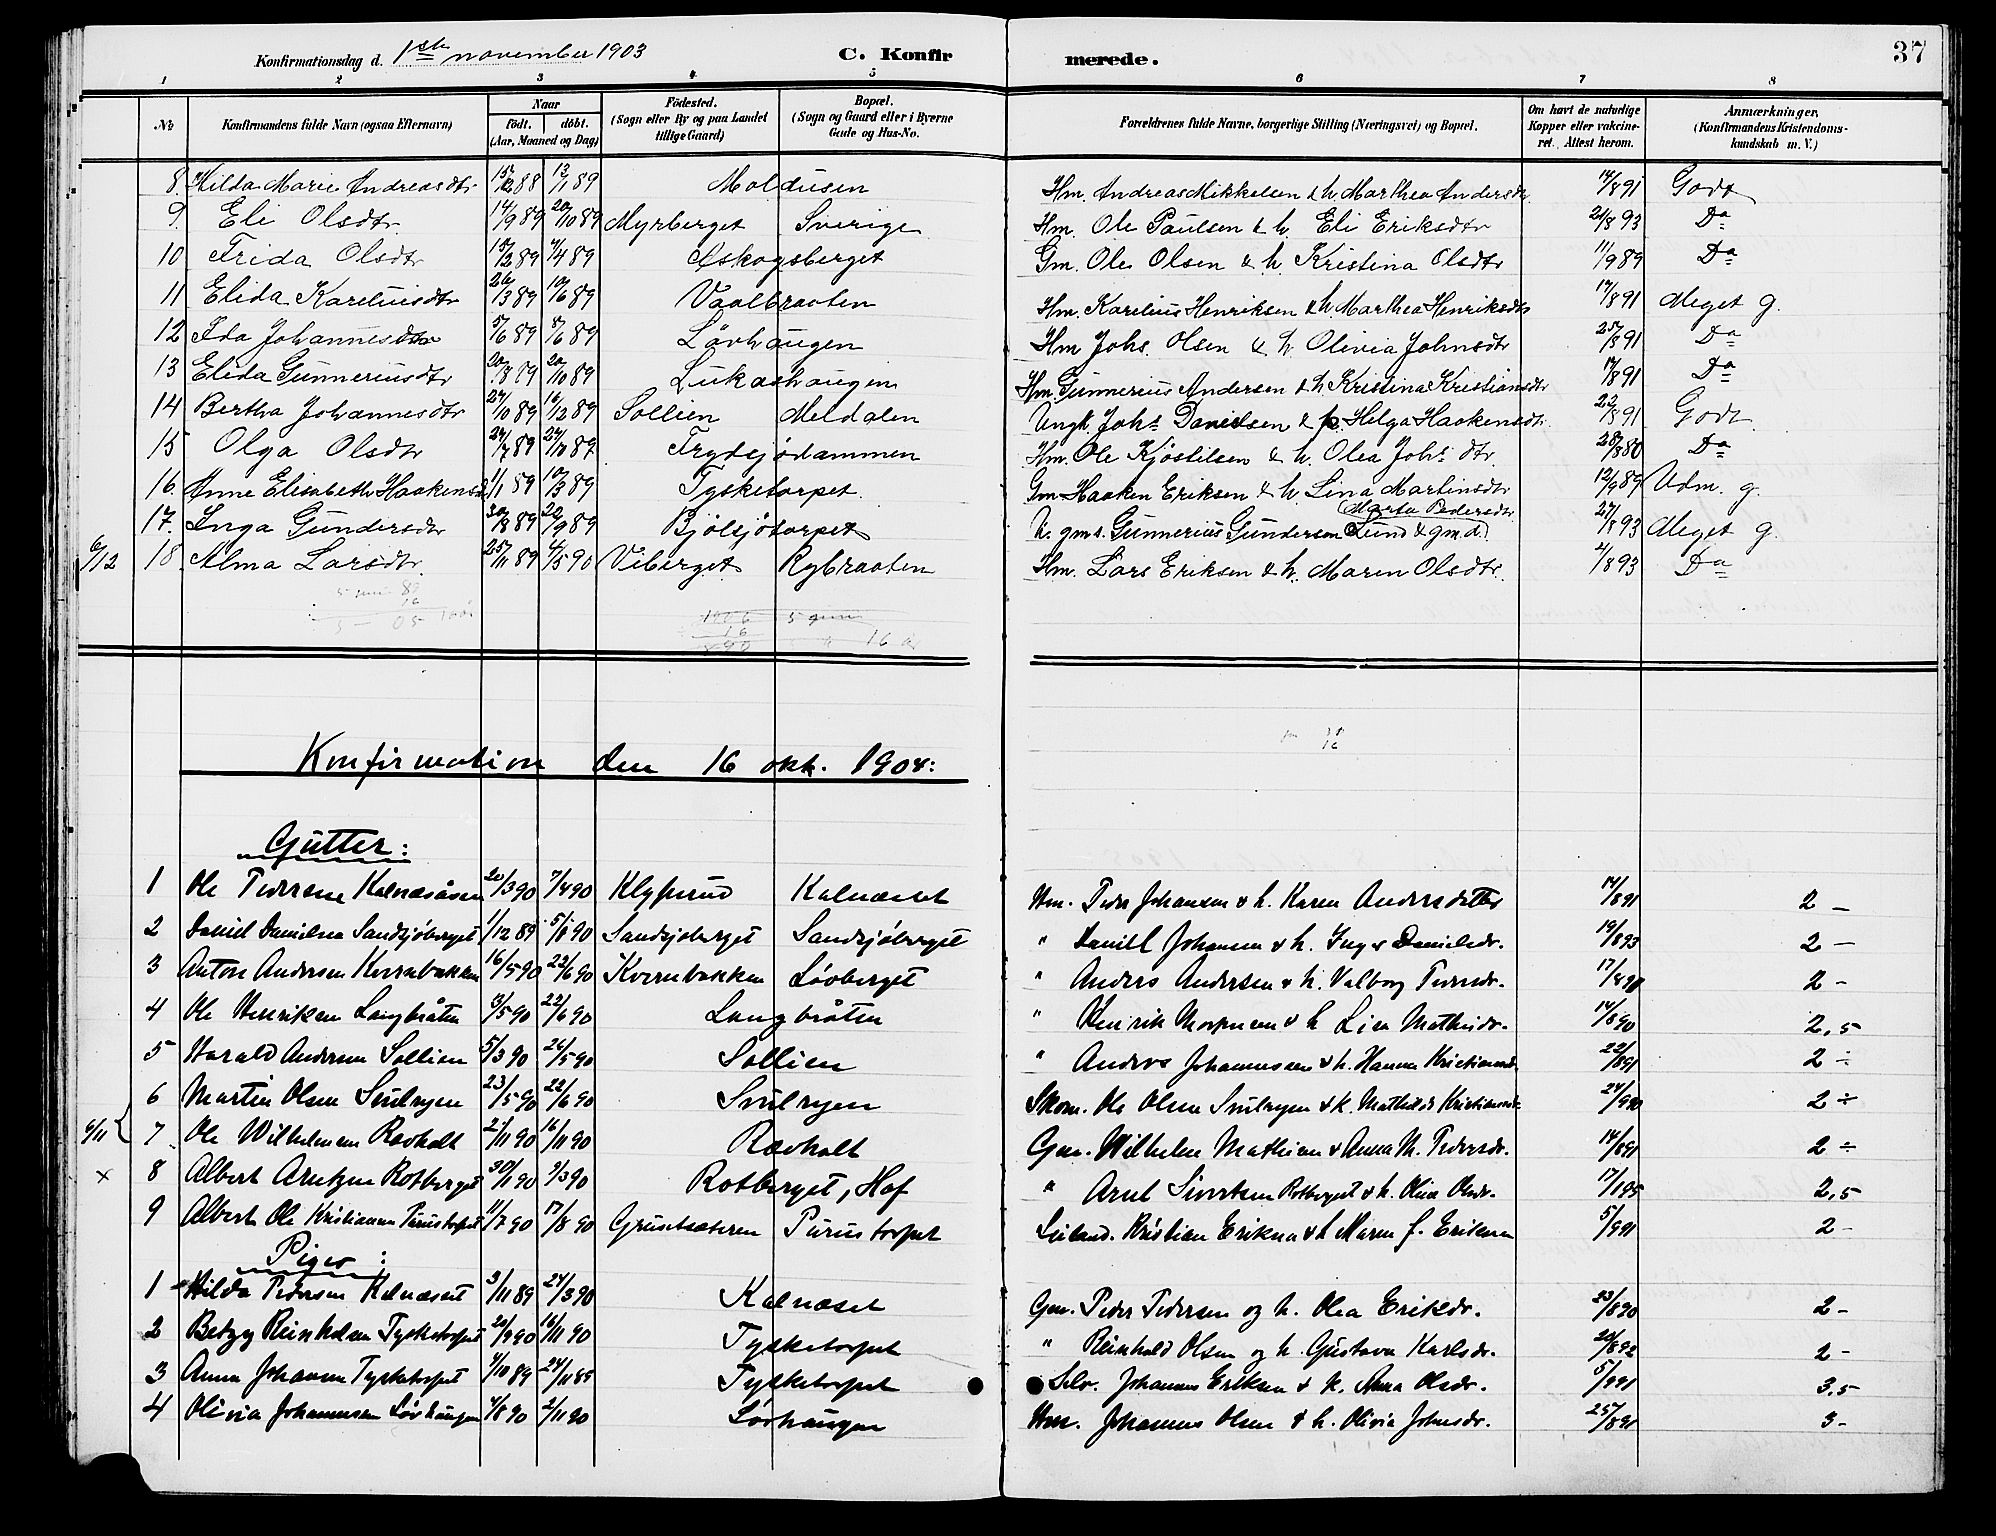 Konfirmationsdag d. 1ste november 1903 C. Konfir merede. 37
1 2 3 4 5 6 7 8
No Konfirmandens fulde Navn (ogsaa Efternavn) Naar Födt. döbt. (Aar, Maaned og Dag) Födested. (Sogn eller By og paa Landet tillige Gaard) Bopæl. (Sogn og Gaard eller i Byerne Gade og Hus-No. Forældrenes fulde Navne, borgerlige Stilling (Næringsvei) og Bopæl. Om havt de naturlige Kopper eller vakcineret. Attest herom. Anmærkninger, (Konfirmandens Kristendomskundskab m. V.)
8. Hilda Marie Andreasdtr 15/12 88 13/1 89 Moldusen Hm. Andreas Mikkelsen & h. Marthea Andersdtr 14/8 91 Godt
9. Eli Olsdtr 14/9 89 20/10 89 Myrberget Sverige Hm. Ole Paulsen & h. Eli Eriksdtr 21/8 93 Do
10 Frida Olsdtr 15/2 89 7/4 89 Øskogsberget Gm. Ole Olsen & h. Kristina Olsdtr 11/9 89 Do
11 Elida Kareliusdtr 26/3 89 10/6 89 Vaalbraaten Hm. Karelius Henriksen & h. Marthea Henriksdtr 17/8 91 Meget g.
12 Ida Johannesdtr 5/6 89 8/6 89 Lövhaugen Hm Johs. Olsen & h. Olivia Johnsdtr 25/8 91 Do
13 Elida Gunneriusdtr 20/8 89 20/10 89 Lukashaugen Hm. Gunnerius Andersen & h. Kristina Kristiansdtr 17/8 91 Do
14 Bertha Johannesdtr 24/10 89 16/12 89 Sollien Meldalen Ungk. Johs Danielsen & p. Helga Haakensdtr 22/8 91 Godt
15 Olga Olsdtr 24/7 89 24/10 89 Frydsjödammen Hm. Ole Kjöstilsen & h. Olea Johs dtr. Do
16. Anne Elisabeth Haakensd 1/1 89 10/3 89 Tysketorpet. Gm Haaken Eriksen & h. Lina Martinsdtr 12/9 89 Udm. g.
17. Inga Gundersdtr 30/8 89 22/9 89 Bjölsjötorpet U. gms. Gunnerius Gundersen Lund & gm.d. Marta Pedersdtr 27/8 93 Meget g.
6/12 18. Alma Larsdtr. 25/11 89 4/5 90 Viberget Rybraaten Hm. Lars Eriksen & h. Maren Olsdtr. 4/8 93 Do
Konfirmation den 16 okt. 1904:
Gutter:
1 Ole Pedersen Kalnæsåsen 20/3 90 7/4 90 Klypurud Kalnæset Hm. Peder Johansen & h. Karen Andersdatter 14/8 91 2 –
2 Daniel Danielsen Sandsjöberget 1/12 89 5/1 90 Sandsjöberget Sandsjöberget " Daniel Johansen & h. Inger Danielsdr. 19/8 93 2 –
3 Anton Andersen Kvernbakken 16/5 90 22/6 90 Kvernbakken Lövberget " Anders Andersen & h. Valborg Pedersdr. 2 –
4 Ole Henriksen Langbråten 3/5 90 22/6 90 Langbråten " Henrik & h Lisa Mathisdr. 14/8 90 2,5
5 Harald Andersen Sollien 5/3 90 26/5 90 Sollien " Anders Johannessen & h. Hanna Kristiansdr. 22/8 91 2 ÷
6 Martin Olsen Snilryen 23/5 90 22/6 90 Snilryen Skom. Ole Olsen Snilryen & k. Mathilde Kristiansdr. 24/9 90 2 ÷
4/11 7. Ole Wilhelmsen Rævholt 2/11 90 16/11 90 Rævholt Gm. Wilhelm Mathisen & Anna M. Pedersdr. 14/8 91 2 ÷
x 8 Albert Arntzen Rotberget 30/1 90 9/3 90 Rotberget, Hof " Arnt Sivertsen Rotberget & h. Olina Olsdr. 17/1 95 2,5
9 Albert Ole Kristiansen Purustorpet 11/7 90 17/8 90 Gruetsæteren Purustorpet Leiland. Kristian Eriksen & h Maren J. Eriksen 5/9 91 2 –
Piger:
1 Hilda Pedersen Kalnæset 3/11 89 24/3 90 Kalnæset Gm. Peder Pedersen og h. Olea Eriksdr. 23/8 90 2 –
2 Betzy Reinholsen Tysketorpet 20/9 90 16/11 90 Tysketorpet " Reinhold Olsen og h. Gustava Karlsdr. 22/8 92 2 –
3 Anna Johansen Tysketorpet 4/10 89 24/11 89 Tysketorpet Selv. Johannes Eriksen & k. Anna Olsdr. 5/9 91 3,5
4 Olivia Johannessen Lövhaugen 4/8 90 2/11 90 Lövhaugen Hm. Johannes Olsen & h. Olivia Johnsdr. 25/8 91 3 –